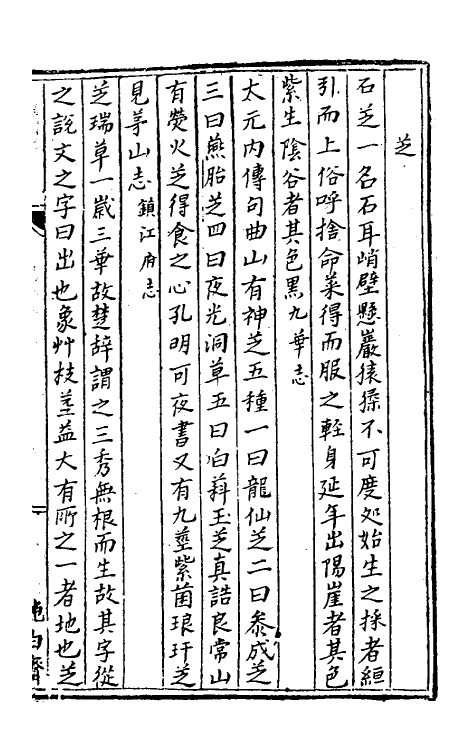 芝
石芝一名石耳峭壁懸巖猿猱不可度处始生之採者縆
引而上俗呼捨命菜得而服之軽身延年出陽崖者其色
紫生陰谷者其色黒九華志
太元内傳句曲山有神芝五種一曰龍仙芝二曰叅成芝
三曰燕胎芝四曰夜光洞草五曰白蒜玉芝真誥良常山
有熒火芝得食之心孔明可夜書又有九莖紫菌琅玕芝
見茅山志鎮江府志
芝瑞草一嵗三華故楚辭謂之三秀無根而生故其字從
之說文之字曰出也象艸枝莖益大有所之一者地也芝